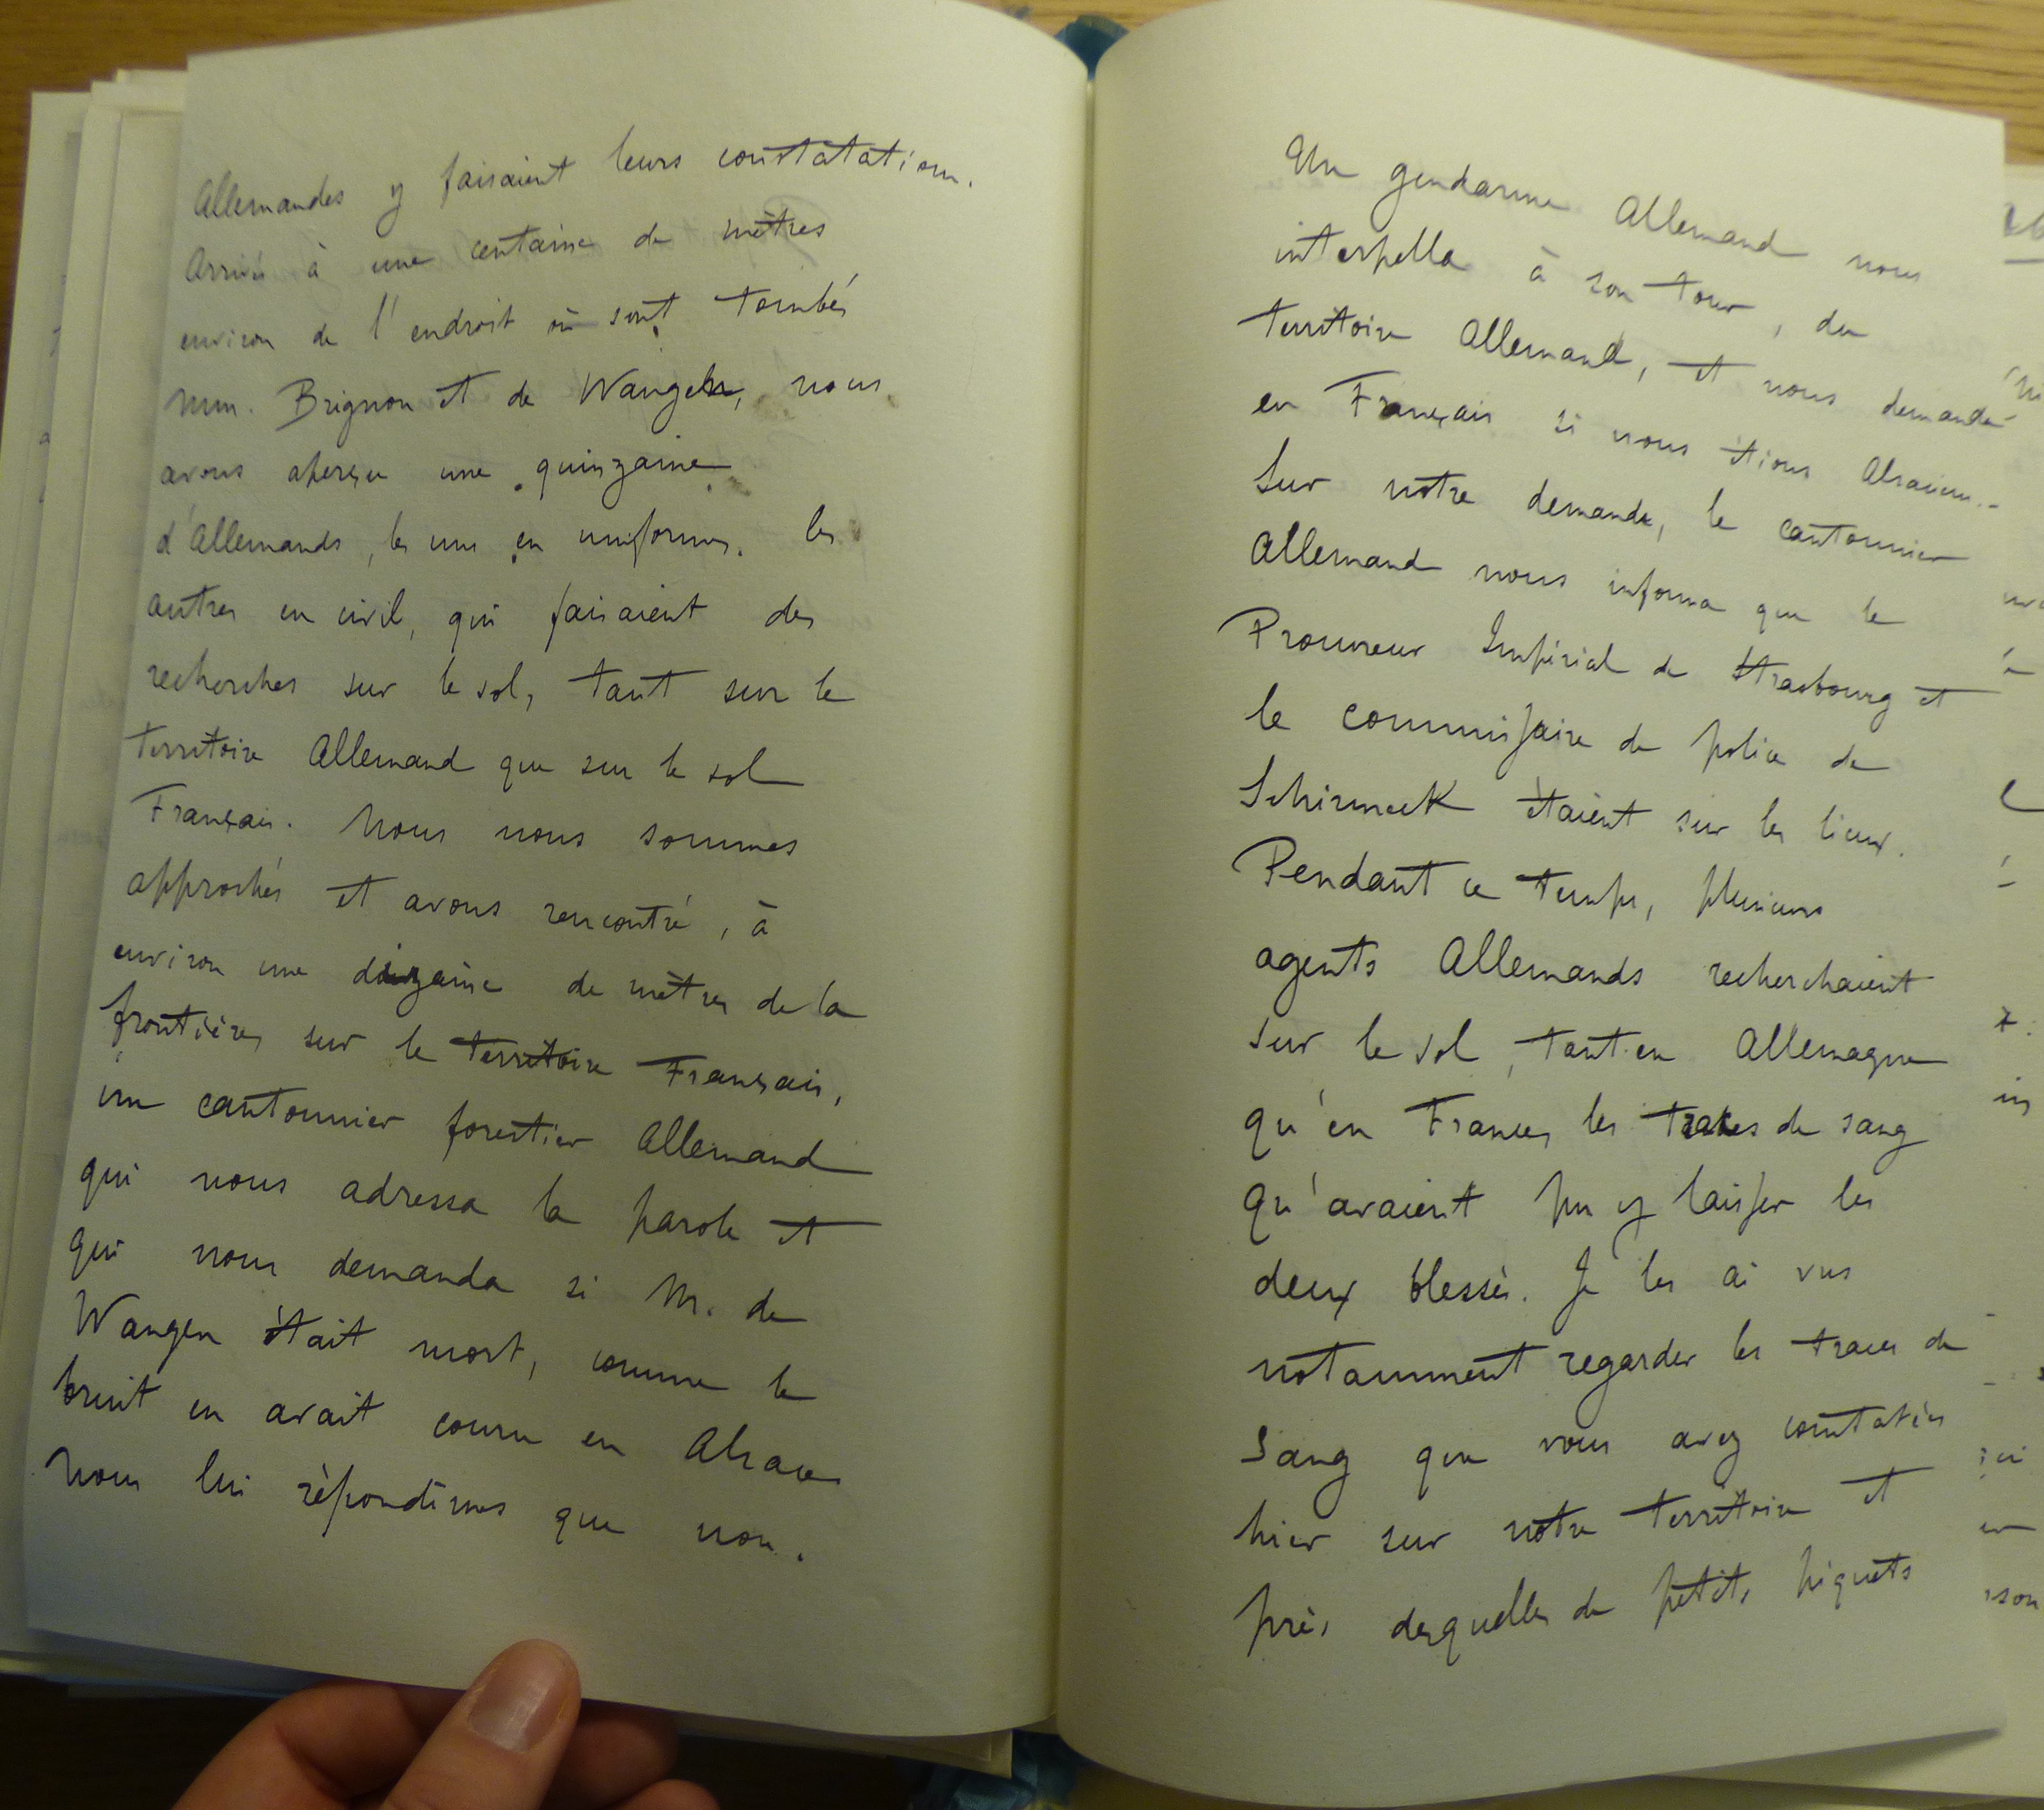 Allemandes y faisaient leurs constatations.
Arrivés à une centaine de mètres
environ de l'endroit où sont tombés
MM. Brignon et de Wangen, nous
avons aperçu une quinzaine
d'Allemands, les uns en uniformes, les
autres en civil, qui faisaient des
recherches sur le sol, tant sur le
territoire Allemand que sur le sol
Français. Nous nous sommes
approchés et avons rencontré, à
environ une dizaine de mètres de la
frontière, sur le territoire Français,
un cantonnier forestier Allemand
qui nous adressa la parole et
qui nous demanda si M. de
Wangen était mort, comme le
bruit en avait couru en Alsace.
Nous lui répondîmes que non.
Un gendarme Allemand nous
interpella à son tour, du
territoire Allemand, et nous demanda
en Français si nous étions Alsaciens.
Sur notre demande, le cantonnier
Allemand nous informa que le
Procureur Impérial de Strasbourg et
le commissaire de police de
Schirmeck étaient sur les lieux.
Pendant ce temps, plusieurs
agents Allemands recherchaient
sur le sol, tant en Allemagne
qu'en France, les traces de sang
qu'avaient pu y laisser les
deux blessés. Je les ai vus
notamment regarder les traces de
sang que vous avez constatées
hier sur notre territoire et
près desquelles de petits piquets